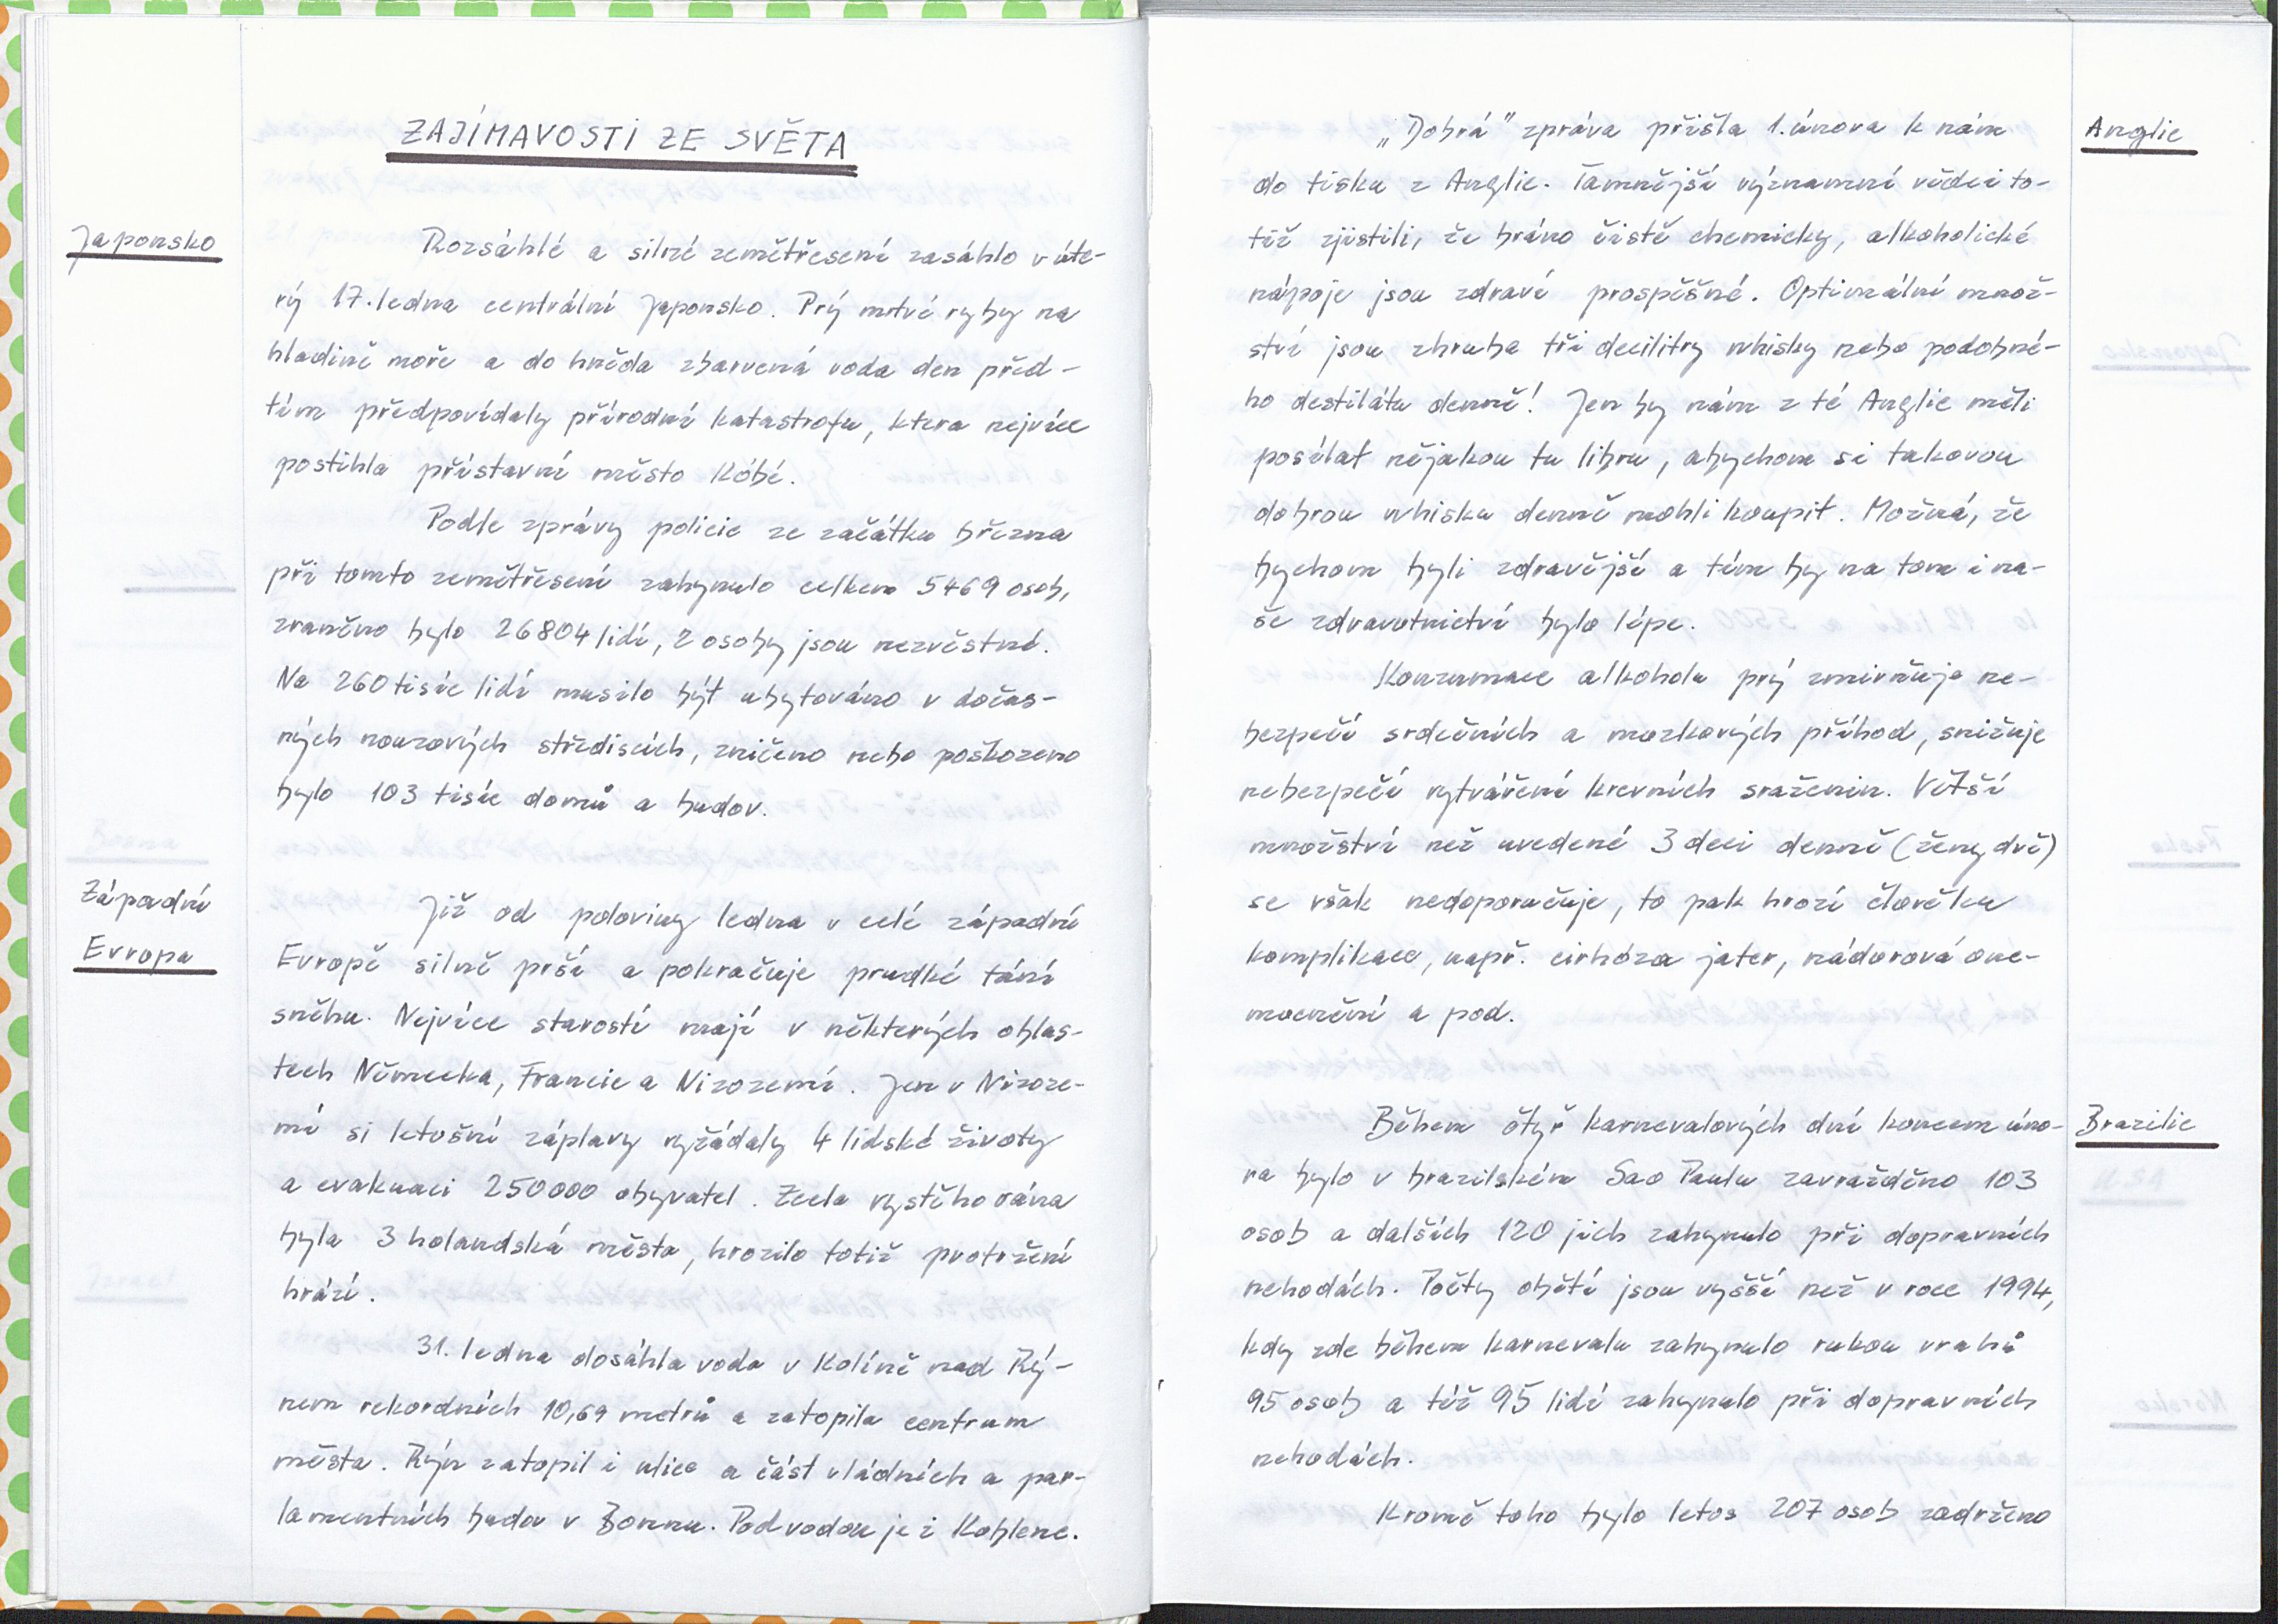 ZAJÍMAVOSTI ZE SVĚTA
Japonsko
Rozsáhlé a silné zemětřesení zasáhlo v úte-
rý 17. ledna centrální Japonsko. Prý mrtvé ryby na
hladině moře a do hněda zbarvená voda den před-
tím předpovídaly přírodní katastrofu, ktera nejvíce
postihla přístavní město Kóbé.
Podle zprávy policie ze začátku března
při tomto zemětřesení zahynulo celkem 5469 osob,
zraněno bylo 26804 lidí, 2 osoby jsou nezvěstné.
Na 260 tisíc lidí musilo být ubytováno v dočas-
ných nouzových střediscích, zničeno nebo poškozeno
bylo 103 tisíc domů a budov.
Západní
Evropa
Již od poloviny ledna v celé západní
Evropě silně prší a pokračuje prudké tání
sněhu. Nejvíce starostí mají v některých oblas-
tech Německa, Francie a Nizozemí. Jen v Nizoze-
mí si letošní záplavy vyžádaly 4 lidské životy
a evakuaci 250000 obyvatel. Zcela vystěhována
byla 3 holandská města, hrozilo totiž protržení
hrází.
31. ledna dosáhla voda v Kolíně nad Rý-
nem rekordních 10,69 metrů a zatopila centrum
města. Rýn zatopil i ulice a část vládních a par-
lamentních budov v Bonnu. Pod vodou je i Koblenc.
Anglie
„Dobrá" zpráva přišla 1. února k nám
do tisku z Anglie. Tamnější významní vědci to-
tiž zjistili, že bráno čistě chemicky, alkoholické
nápoje jsou zdraví prospěšné. Optimální množ-
ství jsou zhruba tři decilitry whisky nebo podobné-
ho destilátu denně! Jen by nám z té Anglie měli
posílat nějakou tu libru, abychom si takovou
dobrou whisku denně mohli koupit. Možná, že
bychom byli zdravější a tím by na tom i na-
še zdravotnictví bylo lépe.
Konzumace alkoholu prý zmirňuje ne-
bezpečí srdečních a mozkových příhod, snižuje
nebezpečí vytváření krevních sraženin. Větší
množství než uvedené 3 deci denně (ženy dvě)
se však nedoporučuje, to pak hrozí člověku
komplikace, např. cirhóza jater, nádorová one-
mocnění a pod.
Brazilie
Během čtyř karnevalových dní koncem úno-
ra bylo v brazilském Sao Paulu zavražděno 103
osob a dalších 120 jich zahynulo při dopravních
nehodách. Počty obětí jsou vyšší než v roce 1994,
kdy zde během karnevalu zahynulo rukou vrahů
95 osob a též 95 lidí zahynulo při dopravních
nehodách.
Kromě toho bylo letos 207 osob zadrženo